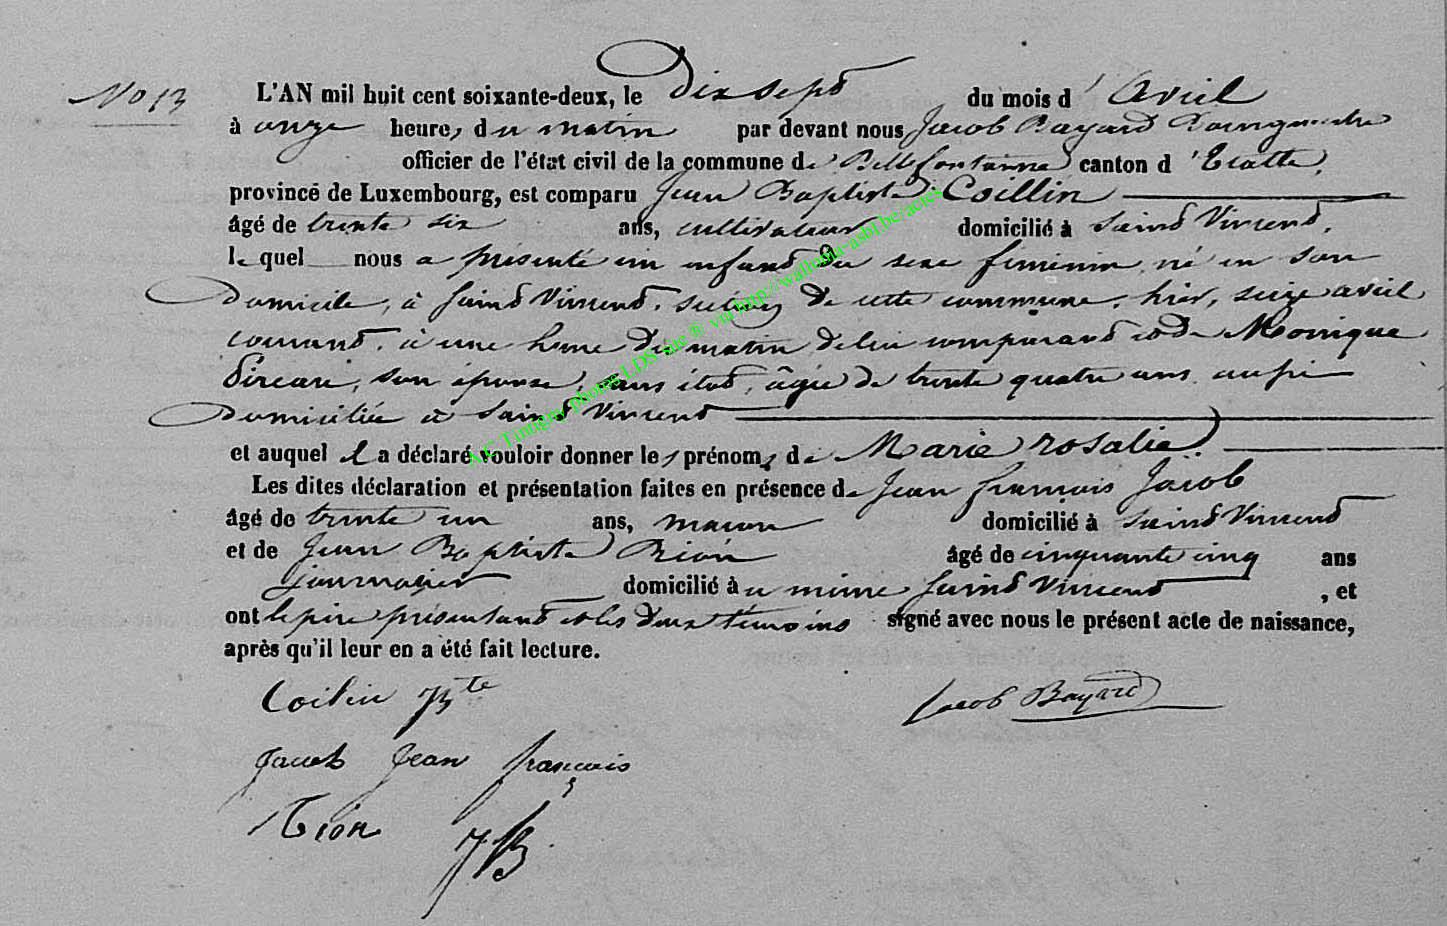 No 13
L'AN mil huit cent soixante-deux, le Dix sept du mois d' Avril
à onze heures du matin par devant nous Jacob Bayard Bourgmestre
officier de l'état civil de la commune de Bellefontaine canton d' Etalle,
province de Luxembourg, est comparu Jean Baptiste Coillin
âgé de trente six ans, cultivateur domicilié à Saint Vincent,
lequel nous a présenté un enfant du sexe féminin, né en son
Domicile, à Saint Vincent, section de cette commune, hier, seize avril
courant, à une heure du matin, de lui comparant et de Monique
son épouse, sans état, âgée de trente quatre ans, aussi
Domiciliée à Saint Vincent
et auquel il a déclaré vouloir donner les prénoms de Marie rosalie.
Les dites déclaration et présentation faites en présence de Jean françois Jacob
âgé de trente un ans, macon domicilié à Saint Vincent
et de Jean Baptiste Rion âgé de cinquante cinq ans
journalier domicilié à u même Saint Vincent, et
ont le père présentant et les deux témoins signé avec nous le présent acte de naissance,
après qu'il leur en a été fait lecture.
Jacob Bayard
Jacob Jean françois
Rion JB
A.C. Tintigny photos LDS site ® via http://wallonia-asbl.be/actes